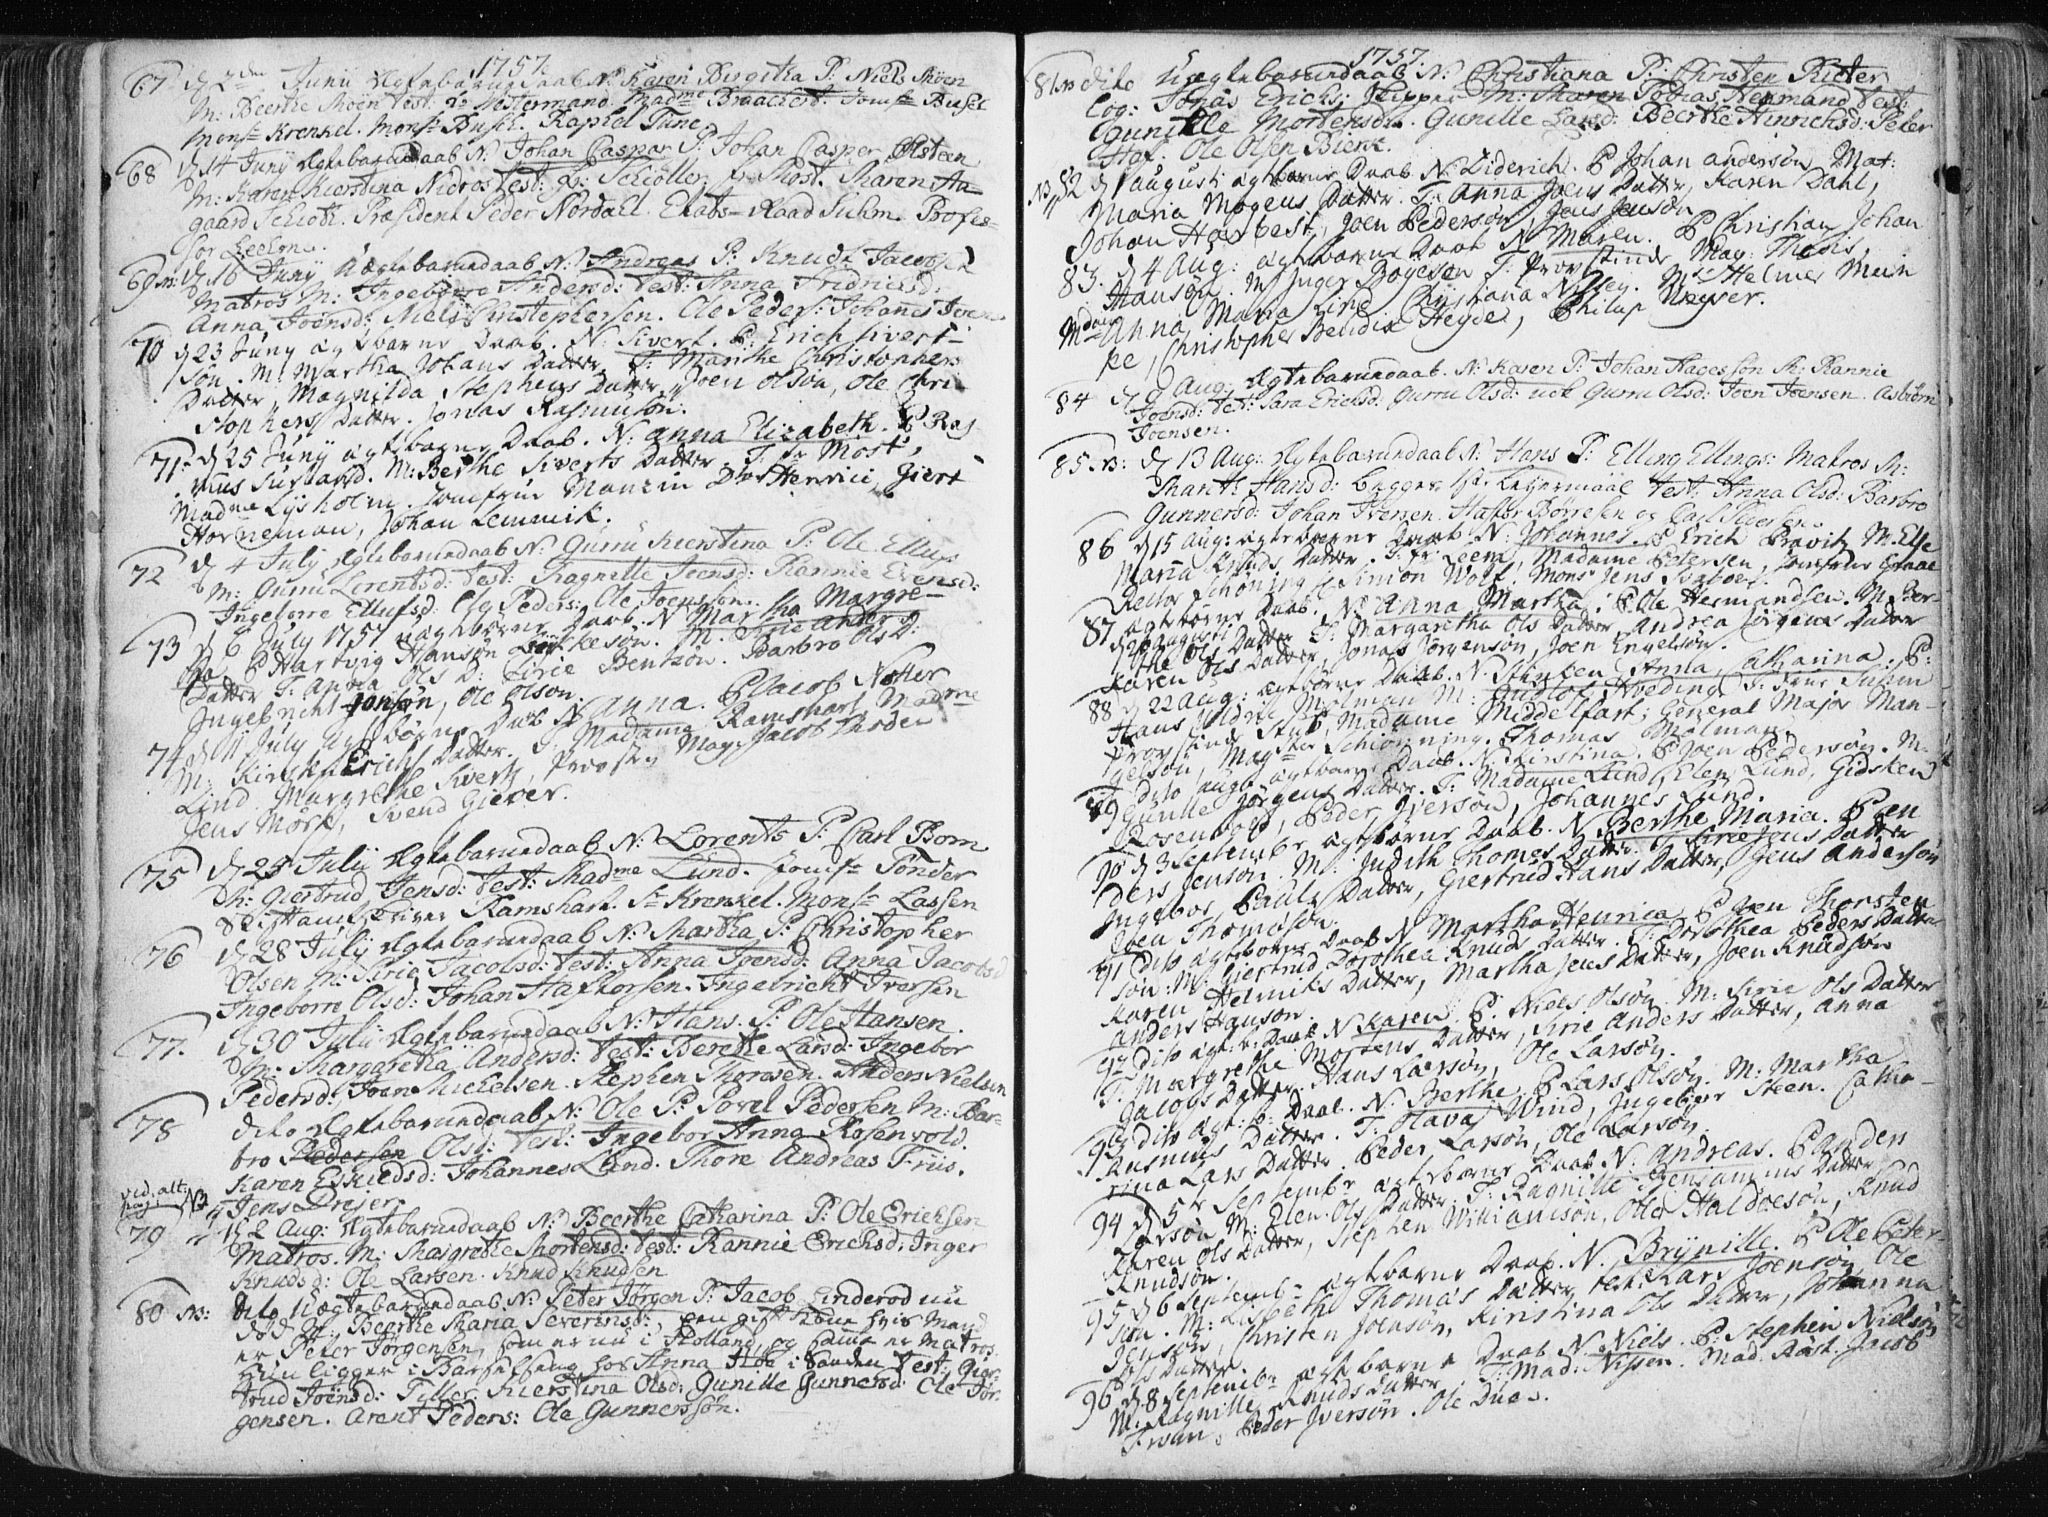 1757.
67 d 2den Junii Ægtebarundaab N: Karen Birgitha P: Niels Skøen
M: Beerthe Skøen Test: Nestermand Madme Braachers: Jomfr Busch
Monsr Krenkel. Monsr Busch. Raphel Tune.
68 d 14 Junij Ægtebarundaab N: Johan Caspar P: Johan Casper Olsteen
M: Karen Kierstina Nidros Test: Fr: Schiøller, Fr Most. Maren Aa-
gaard Schiøtt. Præsident Peder Nordahl. Etats-Raad Suhm. Profes-
sor Leehm.
69 n: d 16 Junij Uægtebarundaab N: Andreas P: Knudt Jacobsen
Matros M: Ingeborre Andersd: Test: Anna Fridrichsd:
Anna Joensd: Niels Christophersen. Ole Peders: Johanes Joens
70 d 23 Juny ægtbarne Daab. N: Sivert. P: Erich Sivert-
søn. M: Martha Johans Datter. T: Marthe Christophers
Datter, Magnilda Stephens Datter, Joen Olsøn, Ole Chri-
stophers Datter. Jonas Rasmusøn.
71. d 25 Juny ægtbarne Daab. N: Anna Elizabeth. P Ras-
mus Susland. M: Berthe Siverts Datter. T: Fr Most,
Madme Lysholm. Jomfrue Mønzen Dhr Henrici, Giert
Horneman, Johan Lemmik.
72 d 4 July Ægtebarundaab N: Gurru Kierstina P: Ole Ellufs:
M: Gurru Lorentsd: Test: Ragnelle Joensd: Rannie Evensd:
Ingeborre Ellufsd: Ole Peders: Ole Joensson.
73 d 6 July 1757 ægtebørne Daab. N Martha Margre-
tha P Hartvig Hansøn Løkkesøn. M. Sirie Anders
Datter T: Anna Ols D: Sirie Bentzøn. Barbro Ols D:
Ingebricht Jonsøn, Ole Olsøn.
74 d 11 July ægtbørne Daab N Anna. P Jacob Nøtter
M: Kirsten Erichs Datter. T Madame Ramshart, Madme
Lind. Margrethe Sivertz, Provsten Mag: Jacob Thode
Jens Mørk, Svend Giæver.
75 d 25 Julij Ægtebarundaab N: Lorents P: Carl Born
M: Giertrud Jensd: Test: Madme Lund. Jomfr Tønder
Ramshart. Sr Krenkel. Monsr Lassen
76 d 28 Julij Ægtebarundaab N: Martha P: Christopher
Olsen M: Sirie Jacobsd: Test: Anna Joensd: Anna Jacobsd
Ingeborre Olsd: Johan Haftorsen. Ingebricht Iversen
77. d 30 Julii Ægtebarundaab N: Hans. P: Ole Hansen.
M: Margaretha Andersd: Test: Berethe Larsd: Ingebor
Pedersd: Joen Michelsen. Stephen Thoresen. Anders Nielsen
78 dito Ægtebarundaab N: Ole P: Povel Pedersen M: Bar-
bro Pedersen Olsd: Test: Ingebor Anna Rosenvold.
Karen Eskildsd: Johannes Lund. Thore Andreas Friis.
Jens Drejer.
vid. alt: pag: NB
79 d 2 Aug: Ægtebarundaab N: Beerthe Catharina P: Ole Erichsen
Matros. M: Margrethe Mortensd: Test: Rannie Erichsd: Inger
Knudsd: Ole Larsen. Knud Knudsen
80 NB: dito Uægtebarundaab N: Peter Jørgen P: Jacob Linderod nu
død M: Beerthe Maria Severinsd:, een gift kone hvis Mand
er Peter Jørgensen, som er nu i Holland, og samme er Matros
hun ligger i Barselseng hos Anna Hoe i Sanden Test: Gier-
trud Joensd: Tiller Kierstina Olsd: Gunille Gunnersd: Ole Jør-
gensen. Arent Peders: Ole Gunnersøn.
1757.
81. n dito Uægtebarundaab N: Christiana P: Christen Rieter
Log: Jonas Erichs: Skipper M: Maren Tobias Nermand Test:
Gunille Mortensdr. Gunille Larsd: Beerthe Hinrichsd: Peter
Hof: Ole Olsen Bierk.
NB 82 d 1 august: ægtbørne Daab. N Diderich. P Johan Andersøn, Mat:
Maria Mogens Datter. T: Anna Joens Datter, Karen Dahl,
Johan Høxbest, Joen Pedersøn, Jens Jensøn
83. d 4 Aug: ægtbørne Daab N Maren. P Christian Johan
Hansøn. M Inger Bøgesen T: Provstinde Mag: Thodis,
Mdme Anna Maria Lind Christiana Nissen. Mr Helmer Mein
ke, Christopher Bendix Heyde, Philip Meyer.
84 d 9 Aug: Ægtebarundaab. N: Karen P: Johan Hagessøn M: Rannie
Joensd: Test: Sara Ericksd: Gurru Olsd: nok Gurru Olsd: Joen Joensen. Asbiørn
Joensen.
85. n: d 13 Aug: Ægtebarundaab N: Hans P: Elling Ellings: Matros M:
Marith Hansd: begges 1st: Leyermaal Test: Anna Olsd: Barbro
Gunnersd: Johan Iversen. Hafor Børresen og Carl Siversen.
86 d 15 Aug: ægtebørne Daab. N: Johannes. P Erich Pravitz M: Else
Maria Knuds Datter. T: Fr: Leem, Madame Petersen, Jomfrue Graae
Rector Schøning, Simon Wolf. Mons Jens
87 d 20 Augusti ægtbørne Daab. N: Anna Martha. P: Ole Hermandsen. M: Ber-
the Ols Datter T: Margaretha Ols Datter Andrea Jørgens Datter
Karen Ols Datter, Jonas Jørgensøn, Joen Engelsøn.
88 d 22 Aug: ægtbørne Daab. N: Stinken Anna Catharina. P:
Hans Uldric Mølman M: Gustof Hveding. T: Frue Suhm
Provstinde Stub, Madame Middelfart; General Major Man-
gelsøn, Magster Schiønning. Thomas Mølman.
89 dito Aug: ægtbørne Daab. N Kirstina. P Joen Pedersøn. M:
Gunille Jørgens Datter. T: Madame Lund, Elen Lund, Gidsken
Rosenvold, Peder Iversøn, Johannes Lund
90 d 3 Septembr ægtbørne Daab. N Berthe Maria. P Pen
ders Jenson. M: Judith Thomes Datter. T Sirie Jens Datter
Ingebor Pauls Datter, Giertrud Hans Datter, Jens Andersøn
Joen Thomøsøn.
91 Dito ægtbørne Daab N Martha Henrica P Joen Thorsten
søn: M: Giertrud Dorothea Knuds Datter. T: Dorothea Peders Datter
Karen Helmiks Datter, Martha Jens Datter, Joen Knudsøn
Anders Hansøn.
92 Dito ægt: B: Daab N Karen P. Niels Olsøn. M: Sirie Ols Datter
T: Margrethe Mortens Datter, Sirie Anders Datter, Anna
Jacobs Datter. Hans Larsøn, Ole Larsøn.
93 Dito ægt: B: Daab. N. Berthe P Lars Olsøn. M: Martha
Rasmus Datter. T: Olava Wind, Ingeborg Steen. Catha-
rina Lars Datter. Peder Larsøn, Ole Larsøn.
94 d 5te Septembr ægtebørne Daab N: Andreas. P Anders
Larsøn M: Elen Ols Datter. T: Ragnille Benjamins Datter
Karen Ols Datter, Stephen Williamsøn, Ole Haldoesøn, Knud
Knudsøn.
95 d 6 Septembr ægtbørne Daab. N. Brynille. P Ole Peter-
søn. M: Lisbeth Thomas Datter, test: Kari Joensøn, Ole
Jensøn, Christen Joensøn, Kiristina Ols Datter, Johanna
Ols Datter.
96 d 8 Septembr ægtbørne Daab N. Niels. P: Stephen Nielsøn
M: Ragnille Knuds Datter. T: Mad: Nissen. Mad. Røst. Jacob
Peder Iversøn. Ole Due.